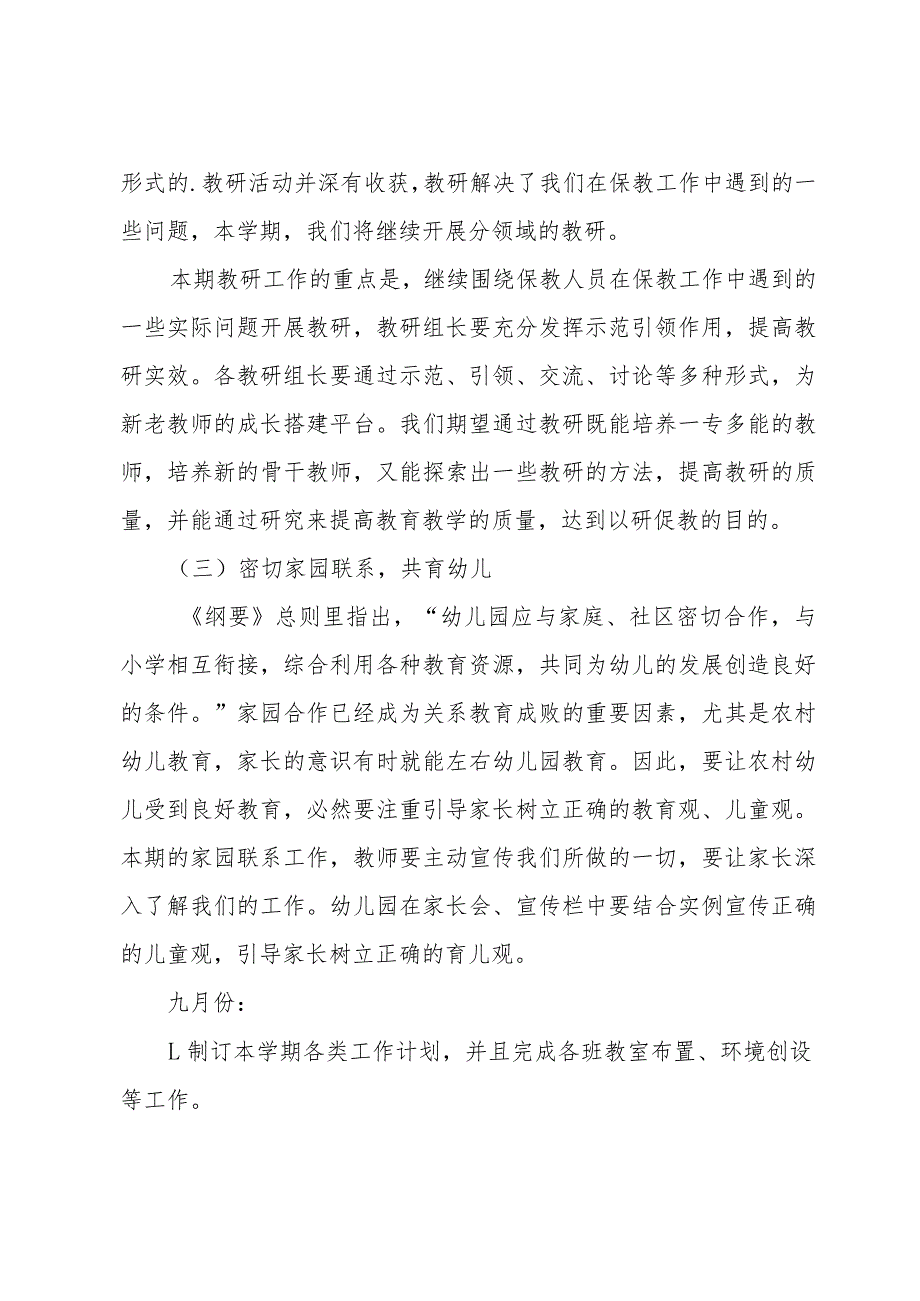 形式的.教研活动并深有收获，教研解决了我们在保教工作中遇到的一
些问题，本学期，我们将继续开展分领域的教研。
本期教研工作的重点是，继续围绕保教人员在保教工作中遇到的
一些实际问题开展教研，教研组长要充分发挥示范引领作用，提高教
研实效。各教研组长要通过示范、引领、交流、讨论等多种形式，为
新老教师的成长搭建平台。我们期望通过教研既能培养一专多能的教
师，培养新的骨干教师，又能探索出一些教研的方法，提高教研的质
量，并能通过研究来提高教育教学的质量，达到以研促教的目的。
（三）密切家园联系，共育幼儿
《纲要》总则里指出，“幼儿园应与家庭、社区密切合作，与
小学相互衔接，综合利用各种教育资源，共同为幼儿的发展创造良好
的条件。”家园合作已经成为关系教育成败的重要因素，尤其是农村
幼儿教育，家长的意识有时就能左右幼儿园教育。因此，要让农村幼
儿受到良好教育，必然要注重引导家长树立正确的教育观、儿童观。
本期的家园联系工作，教师要主动宣传我们所做的一切，要让家长深
入了解我们的工作。幼儿园在家长会、宣传栏中要结合实例宣传正确
的儿童观，引导家长树立正确的育儿观。
九月份：
L制订本学期各类工作计划，并且完成各班教室布置、环境创设
等工作。